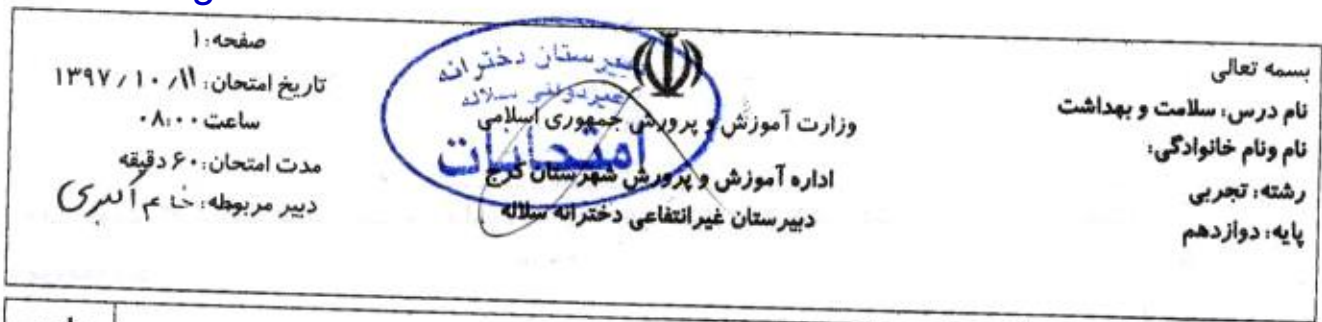 بسمه تعالی
نام درس: سلامت و بهداشت
نام ونام خانوادگی:
رشته: تجربی
پایه: دوازدهم
وزارت آموزش و پرورش جمهوری اسلامی
اداره آموزش و پرورش شهرستان کرج
دبیرستان غیرانتفاعی دخترانه سلاله
دبیرستان دخترانه
غیردولتی سلاله
امتحانات
صفحه: ۱
تاریخ امتحان: ۱۳۹۷/۱۰/۱۱
ساعت ۰۸:۰۰
مدت امتحان: ۶۰ دقیقه
دبیر مربوطه: خانم اکبری